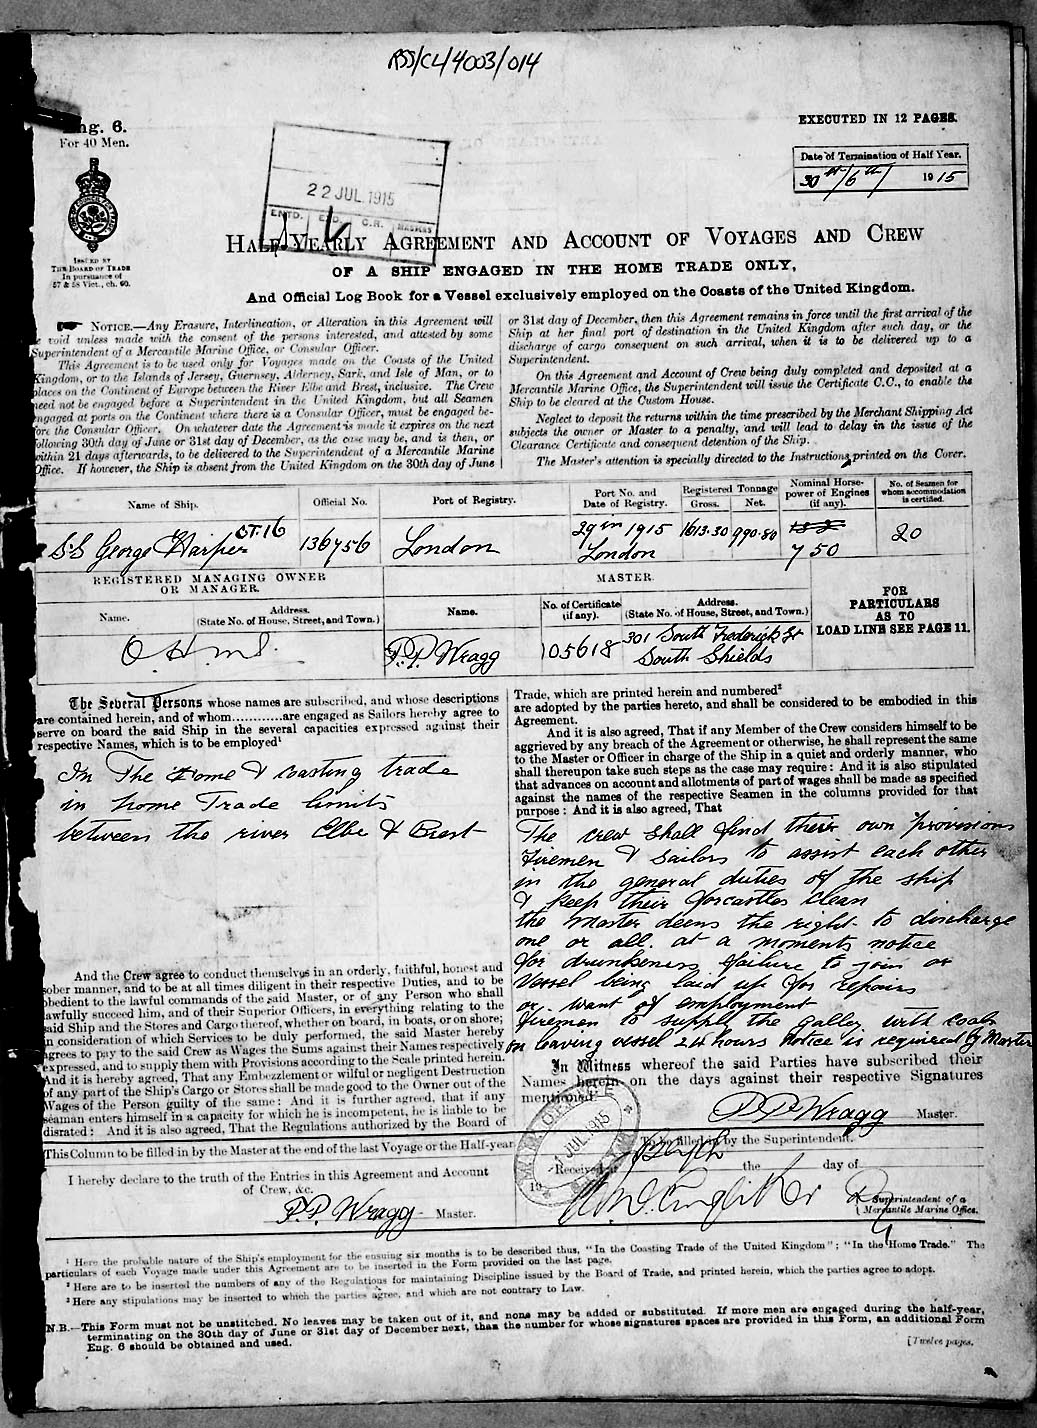 RSS/CL/4003/014
Eng. 6.
For 40 Men.
EXECUTED IN 12 PAGES.
Date of Termination of Half Year.
30th/6th/ 1915
22 JUL 1915
ENTD. C.R.
ISSUED BY
THE BOARD OF TRADE
In pursuance of
57 & 58 Vict., ch. 60.
HALF-YEARLY AGREEMENT AND ACCOUNT OF VOYAGES AND CREW
OF A SHIP ENGAGED IN THE HOME TRADE ONLY,
And Official Log Book for a Vessel exclusively employed on the Coasts of the United Kingdom.
NOTICE.—Any Erasure, Interlineation, or Alteration in this Agreement will
be void unless made with the consent of the persons interested, and attested by some
Superintendent of a Mercantile Marine Office, or Consular Officer.
This Agreement is to be used only for Voyages made on the Coasts of the United
Kingdom, or to the Islands of Jersey, Guernsey, Alderney, Sark, and Isle of Man, or to
places on the Continent of Europe between the River Elbe and Brest, inclusive. The Crew
need not be engaged before a Superintendent in the United Kingdom, but all Seamen
engaged at ports on the Continent where there is a Consular Officer, must be engaged be-
fore the Consular Officer. On whatever date the Agreement is made it expires on the next
following 30th day of June or 31st day of December, as the case may be, and is then, or
within 21 days afterwards, to be delivered to the Superintendent of a Mercantile Marine
Office. If however, the Ship is absent from the United Kingdom on the 30th day of June
or 31st day of December, then this Agreement remains in force until the first arrival of the
Ship at her final port of destination in the United Kingdom after such day, or the
discharge of cargo consequent on such arrival, when it is to be delivered up to a
Superintendent.
On this Agreement and Account of Crew being duly completed and deposited at a
Mercantile Marine Office, the Superintendent will issue the Certificate C.C., to enable the
Ship to be cleared at the Custom House.
Neglect to deposit the returns within the time prescribed by the Merchant Shipping Act
subjects the owner or Master to a penalty, and will lead to delay in the issue of the
Clearance Certificate and consequent detention of the Ship.
The Master's attention is specially directed to the Instructions printed on the Cover.
Name of Ship. Official No. Port of Registry. Port No. and Date of Registry. Registered Tonnage Gross. Net. Nominal Horse-power of Engines (if any). No. of Seamen for whom accommodation is certified.
SS George Harper CT.16 136756 London 29 in 1915 London 1613.30 990.80 750 20
REGISTERED MANAGING OWNER OR MANAGER. MASTER.
Name. Address. (State No. of House, Street, and Town.) Name. No. of Certificate (if any). Address. (State No. of House, Street, and Town.)
FOR PARTICULARS AS TO LOAD LINE SEE PAGE 11.
O.H.M.S. P.P. Wragg 105618 301 South Frederick St
South Shields
The Several Persons whose names are subscribed, and whose descriptions
are contained herein, and of whom............are engaged as Sailors hereby agree to
serve on board the said Ship in the several capacities expressed against their
respective Names, which is to be employed¹
In The Home & coasting trade
in home Trade limits
between the river Elbe & Brest
And the Crew agree to conduct themselves in an orderly, faithful, honest and
sober manner, and to be at all times diligent in their respective Duties, and to be
obedient to the lawful commands of the said Master, or of any Person who shall
lawfully succeed him, and of their Superior Officers, in everything relating to the
said Ship and the Stores and Cargo thereof, whether on board, in boats, or on shore;
in consideration of which Services to be duly performed, the said Master hereby
agrees to pay to the said Crew as Wages the Sums against their Names respectively
expressed, and to supply them with Provisions according to the Scale printed herein.
And it is hereby agreed, That any Embezzlement or wilful or negligent Destruction
of any part of the Ship's Cargo or Stores shall be made good to the Owner out of the
Wages of the Person guilty of the same: And it is further agreed, that if any
seaman enters himself in a capacity for which he is incompetent, he is liable to be
disrated: And it is also agreed, That the Regulations authorized by the Board of
Trade, which are printed herein and numbered²
are adopted by the parties hereto, and shall be considered to be embodied in this
Agreement.
And it is also agreed, That if any Member of the Crew considers himself to be
aggrieved by any breach of the Agreement or otherwise, he shall represent the same
to the Master or Officer in charge of the Ship in a quiet and orderly manner, who
shall thereupon take such steps as the case may require: And it is also stipulated
that advances on account and allotments of part of wages shall be made as specified
against the names of the respective Seamen in the columns provided for that
purpose: And it is also agreed, That
The crew shall find their own provisions
Firemen & Sailors to assist each other
in the general duties of the ship
& keep their forcastles clean
the Master deems the right to discharge
one or all. at a moments notice
for drunkeness failure to join or
Vessel being laid up for repairs
or want of employment
firemen to supply the galley with coals
on leaving vessel 24 hours notice is required by Master
In Witness whereof the said Parties have subscribed their
Names herein on the days against their respective Signatures
mentioned.
P.P. Wragg Master.
This Column to be filled in by the Master at the end of the last Voyage or the Half-year.
I hereby declare to the truth of the Entries in this Agreement and Account
of Crew, &c.
P.P. Wragg Master.
To be filled in by the Superintendent.
Received at the day of
19
1 JUL 1915
Superintendent of a
Mercantile Marine Office.
¹ Here the probable nature of the Ship's employment for the ensuing six months is to be described thus, "In the Coasting Trade of the United Kingdom"; "In the Home Trade." The
particulars of each Voyage made under this Agreement are to be inserted in the Form provided on the last page.
² Here are to be inserted the numbers of any of the Regulations for maintaining Discipline issued by the Board of Trade, and printed herein, which the parties agree to adopt.
³ Here any stipulations may be inserted to which the parties agree, and which are not contrary to Law.
N.B.—This Form must not be unstitched. No leaves may be taken out of it, and none may be added or substituted. If more men are engaged during the half-year,
terminating on the 30th day of June or 31st day of December next, than the number for whose signatures spaces are provided in this Form, an additional Form
Eng. 6 should be obtained and used.
[Twelve pages.